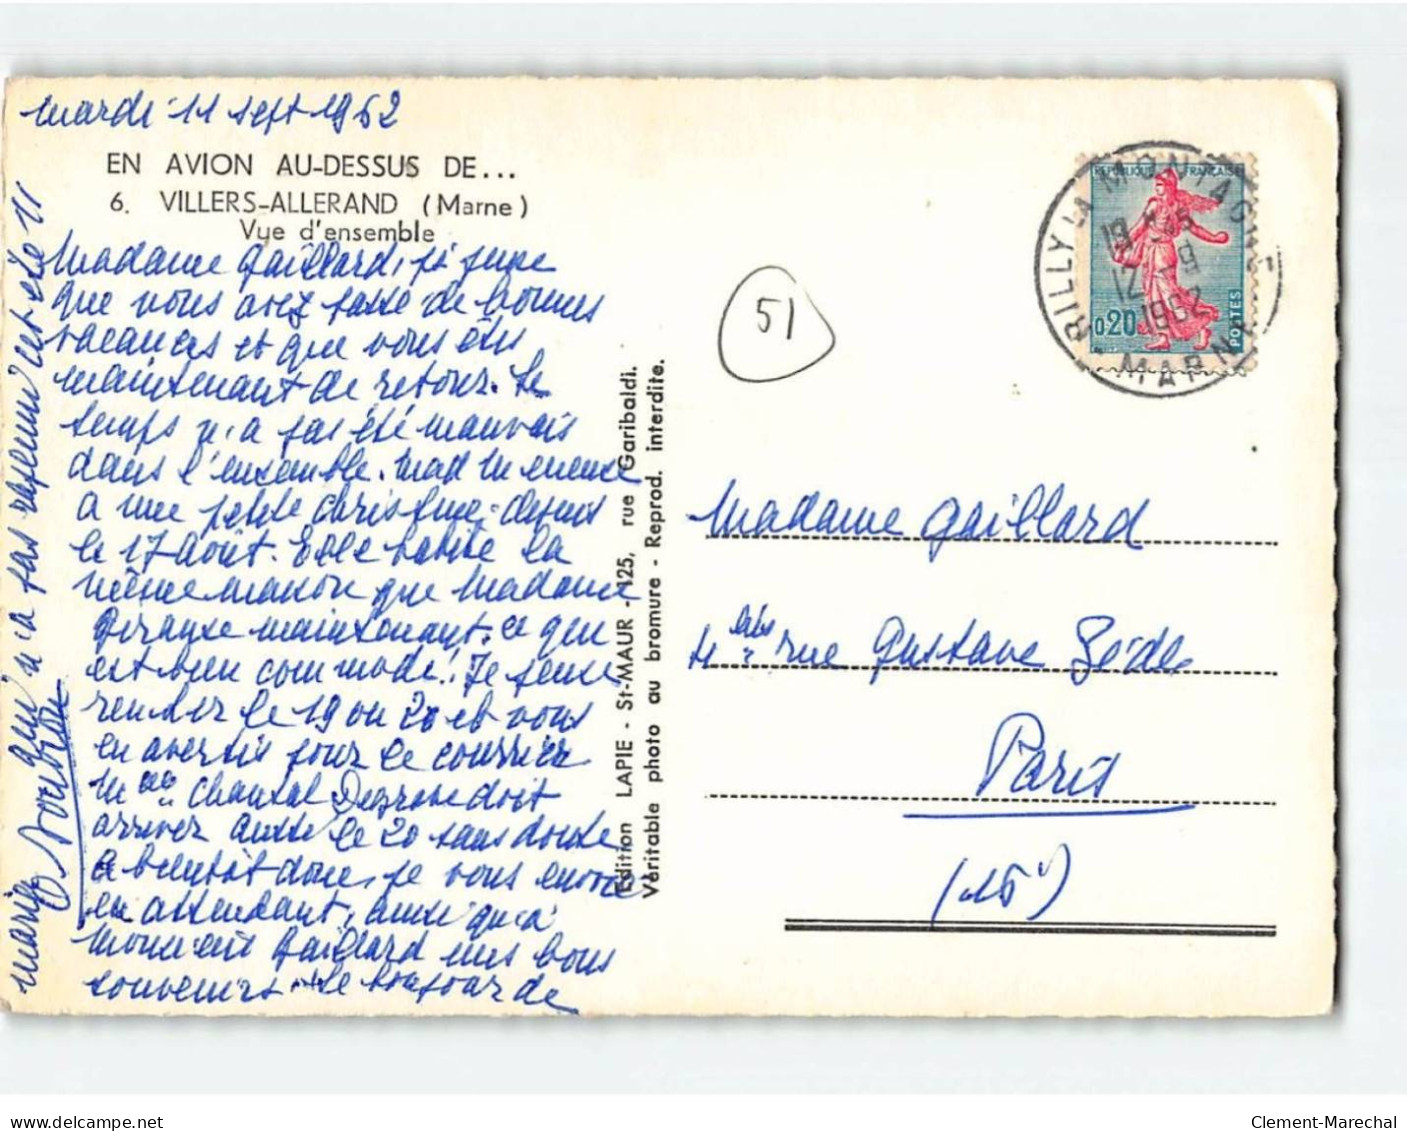 mardi 11 sept 1962
EN AVION AU-DESSUS DE...
6. VILLERS-ALLERAND (Marne)
Vue d'ensemble
Madame Gaillard, je pense
que vous avez passé de bonnes
vacances et que vous êtes
maintenant de retour. Le
temps n'a pas été mauvais
dans l'ensemble. Mad
a une petite Christine depuis
le 17 Août. Elle habite la
même maison que Madame
maintenant. ce qui
est bien commode! Je pense
rentrer le 19 ou 20 et vous
en avertis pour le courrier
Chantal doit
arriver aussi le 20 sans doute
a bientôt donc, je vous envoie
en attendant, ainsi qu'à
Monsieur Gaillard mes bons
souvenirs. le bonjour de
marie qui n'a pas cet été
51
RILLY LA MONTAGNE
19 H 45
12 - 9
1962
MARNE
REPUBLIQUE FRANÇAISE
0,20
POSTES
Edition LAPIE - St-MAUR - 125, rue Garibaldi.
Véritable photo au bromure - Reprod. interdite.
Madame Gaillard
bis rue Gustave
Paris
(15)
www.delcampe.net
Clement-Marechal